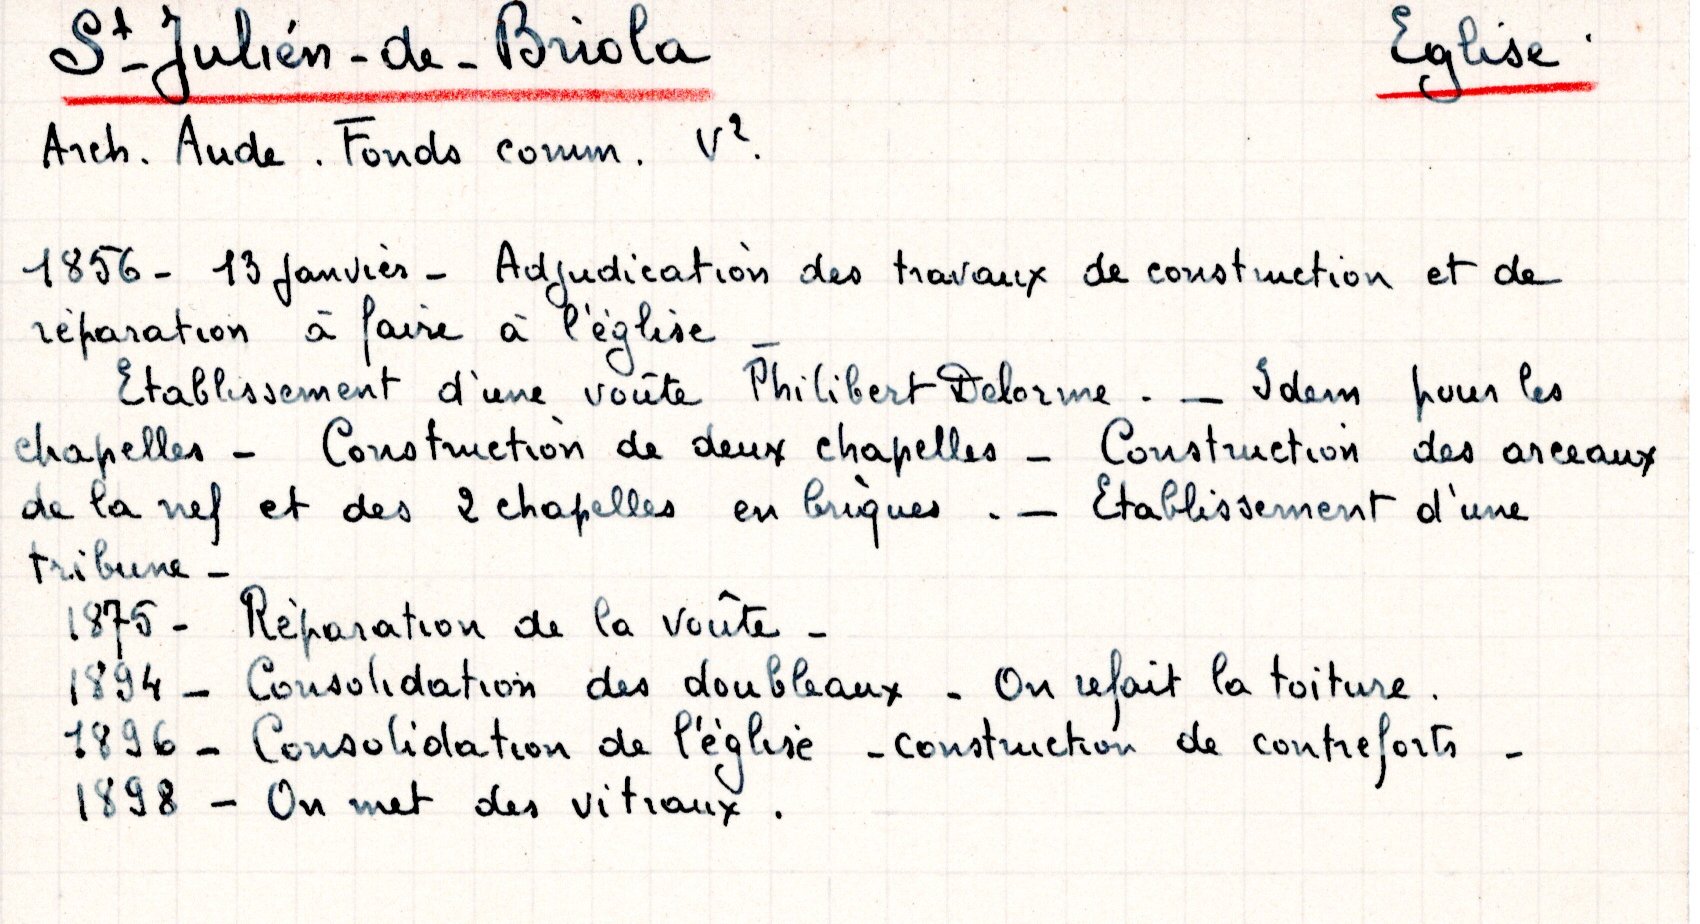 St-Julien-de-Briola Eglise
Arch. Aude. Fonds comm. V².
1856 - 13 janvier - Adjudication des travaux de construction et de
réparation à faire à l'église
Etablissement d'une voûte Philibert Delorme. - Idem pour les
chapelles - Construction de deux chapelles - Construction des arceaux
de la nef et des 2 chapelles en briques. - Etablissement d'une
tribune -
1875 - Réparation de la voûte -
1894 - Consolidation des doubleaux - On refait la toiture.
1896 - Consolidation de l'église - construction de contreforts -
1898 - On met des vitraux.